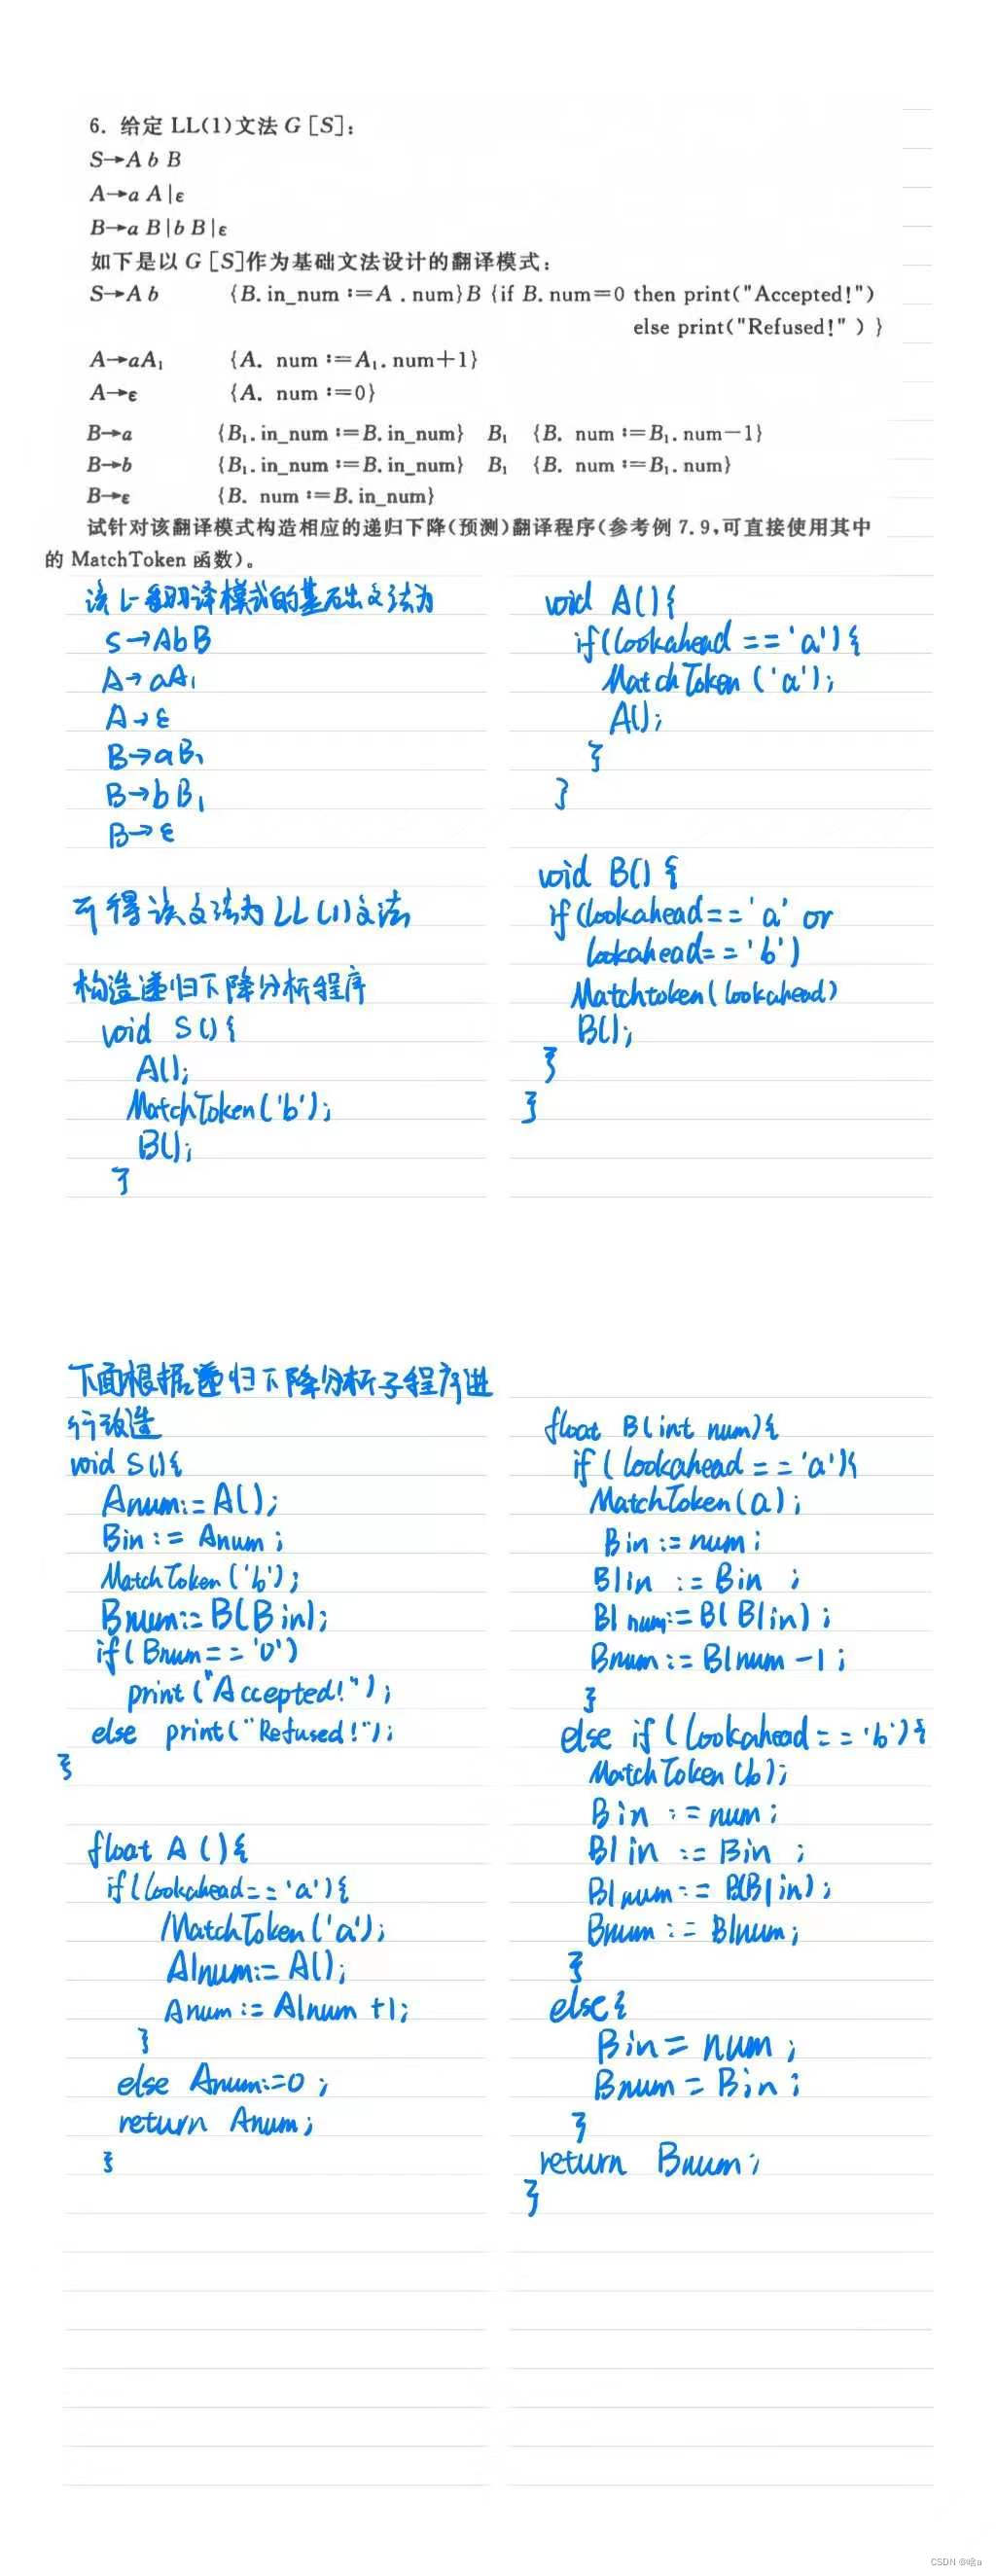 6. 给定 LL(1)文法 G [S]:
S→A b B
A→a A|ε
B→a B|b B|ε
如下是以 G [S]作为基础文法设计的翻译模式:
S→A b {B. in_num :=A . num}B {if B. num=0 then print("Accepted!")
else print("Refused!" ) }
A→aA₁ {A. num :=A₁. num+1}
A→ε {A. num :=0}
B→a {B₁. in_num :=B. in_num} B₁ {B. num :=B₁. num-1}
B→b {B₁. in_num :=B. in_num} B₁ {B. num :=B₁. num}
B→ε {B. num :=B. in_num}
试针对该翻译模式构造相应的递归下降(预测)翻译程序(参考例 7.9,可直接使用其中
的 MatchToken 函数)。
该L-翻译模式的基础文法为
S→AbB
A→aA₁
A→ε
B→aB₁
B→bB₁
B→ε
可得该文法为LL(1)文法
构造递归下降分析程序
void S(){
A();
MatchToken('b');
B();
}
void A(){
if(lookahead=='a'){
MatchToken('a');
A();
}
}
void B(){
if(lookahead=='a' or
lookahead=='b')
Matchtoken(lookahead)
B();
}
}
下面根据递归下降分析子程序进
行改造
void S(){
Anum:=A();
Bin:=Anum;
MatchToken('b');
Bnum:=B(Bin);
if(Bnum=='0')
print("Accepted!");
else print("Refused!");
}
float A(){
if(lookahead=='a'){
MatchToken('a');
A1num:=A();
Anum:=A1num+1;
}
else Anum:=0;
return Anum;
}
float B(int num){
if(lookahead=='a'){
MatchToken(a);
Bin:=num;
B1in:=Bin;
B1num:=B(B1in);
Bnum:=B1num-1;
}
else if(lookahead=='b'){
MatchToken(b);
Bin:=num;
B1in:=Bin;
B1num:=B(B1in);
Bnum:=B1num;
}
else{
Bin=num;
Bnum=Bin;
}
return Bnum;
}